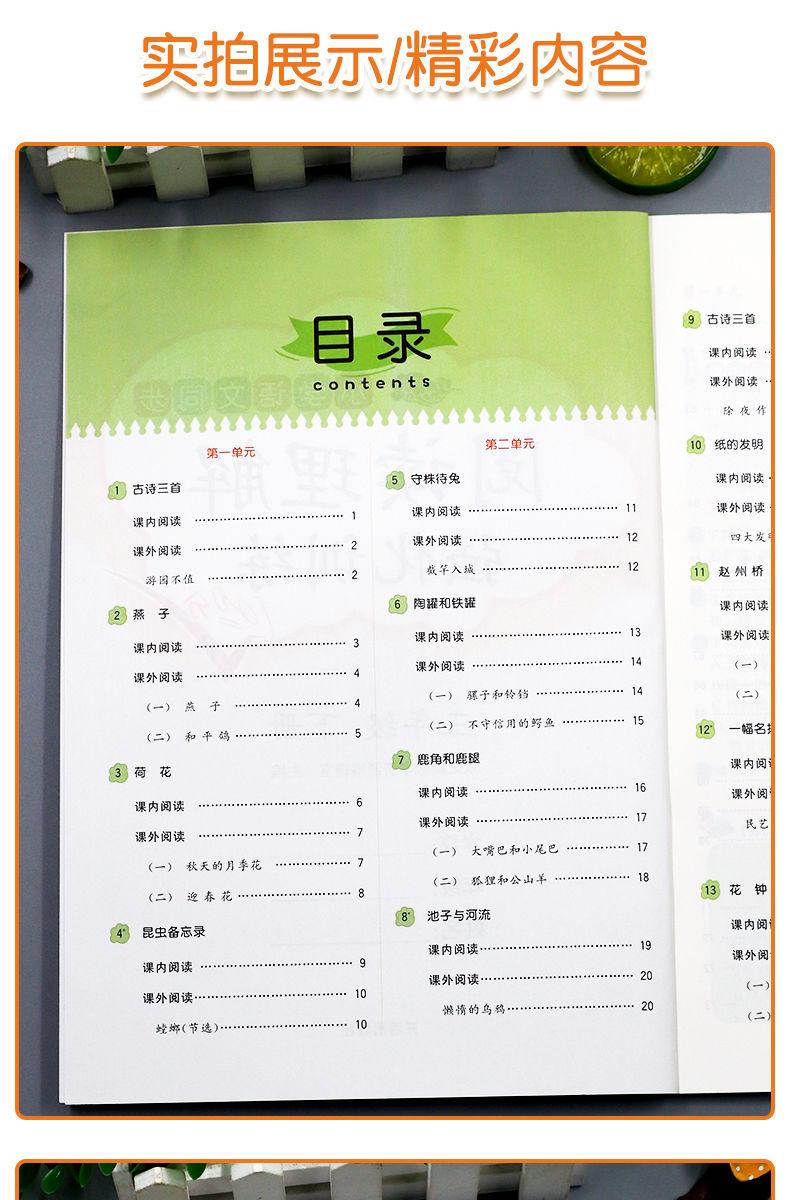 实拍展示/精彩内容
目录
contents
第一单元
1 古诗三首
课内阅读 …… 1
课外阅读 …… 2
游园不值 …… 2
2 燕 子
课内阅读 …… 3
课外阅读 …… 4
（一） 燕 子 …… 4
（二） 和平鸽 …… 5
3 荷 花
课内阅读 …… 6
课外阅读 …… 7
（一） 秋天的月季花 …… 7
（二） 迎春花 …… 8
4* 昆虫备忘录
课内阅读 …… 9
课外阅读 …… 10
螳螂(节选) …… 10
第二单元
5 守株待兔
课内阅读 …… 11
课外阅读 …… 12
截竿入城 …… 12
6 陶罐和铁罐
课内阅读 …… 13
课外阅读 …… 14
（一） 骡子和铃铛 …… 14
（二） 不守信用的鳄鱼 …… 15
7 鹿角和鹿腿
课内阅读 …… 16
课外阅读 …… 17
（一） 大嘴巴和小尾巴 …… 17
（二） 狐狸和公山羊 …… 18
8* 池子与河流
课内阅读 …… 19
课外阅读 …… 20
懒惰的乌鸦 …… 20
9 古诗三首
课内阅读
课外阅读
除夜作
10 纸的发明
课内阅读
课外阅读
四大发
11 赵州桥
课内阅读
课外阅读
（一）
（二）
12* 一幅名
课内阅
课外阅
民艺
13 花 钟
课内阅
课外阅
（一）
（二）